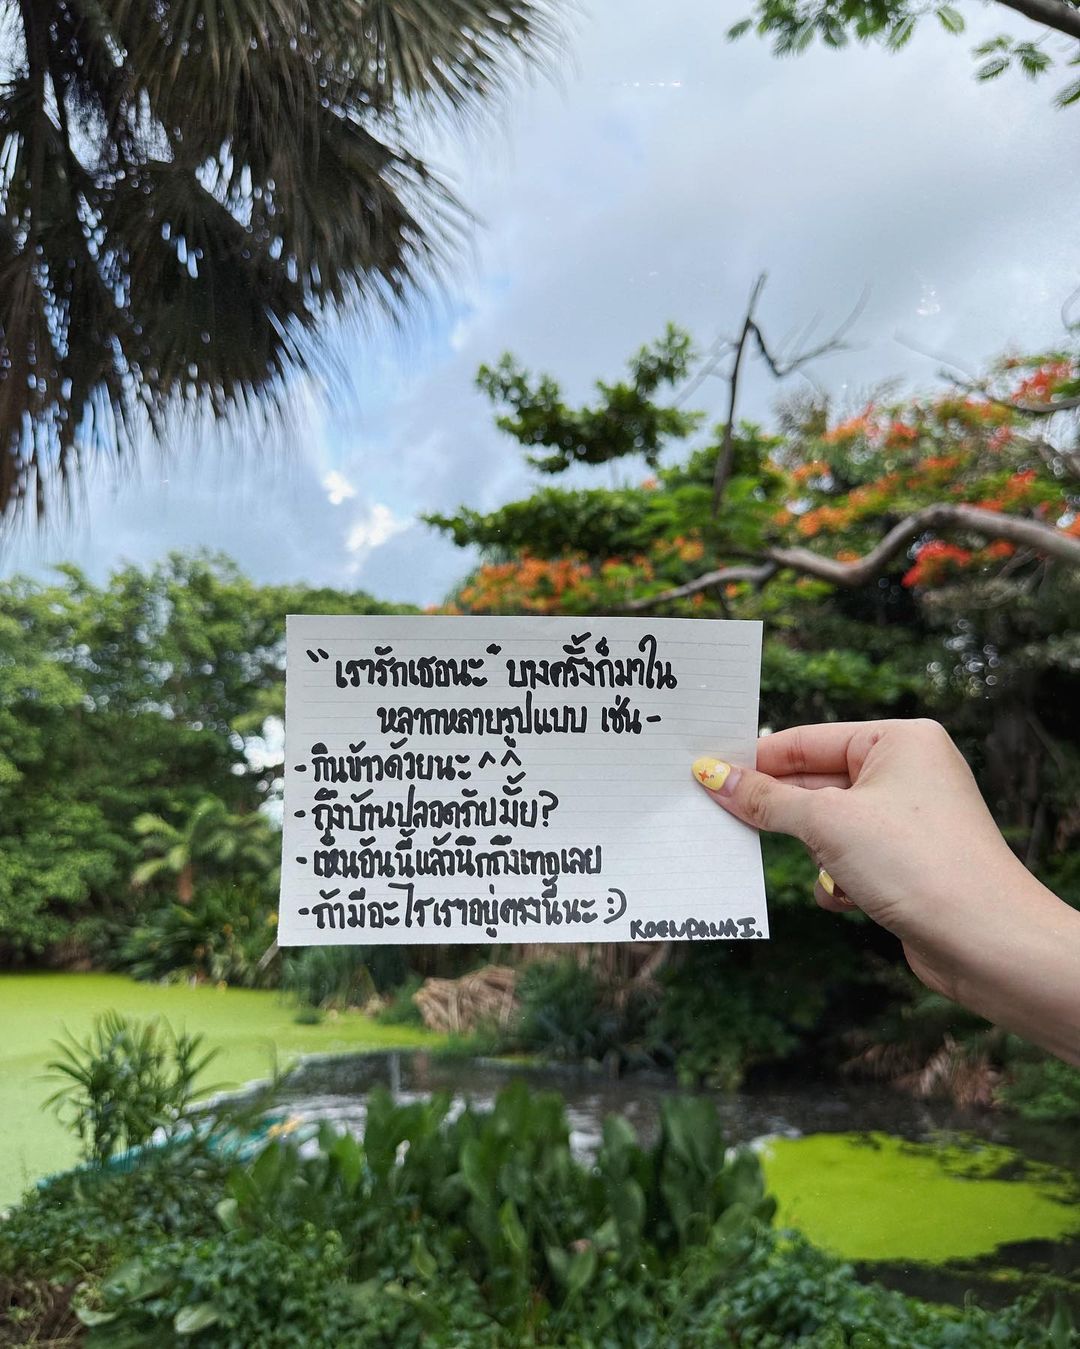 "เรารักเธอนะ" บางครั้งก็มาใน
หลากหลายรูปแบบ เช่น-
- กินข้าวด้วยนะ ^^
- ถึงบ้านปลอดภัยมั้ย?
- เห็นอันนี้แล้วนึกถึงเทอเลย
- ถ้ามีอะไรเราอยู่ตรงนี้นะ :)
KOENDANAI.